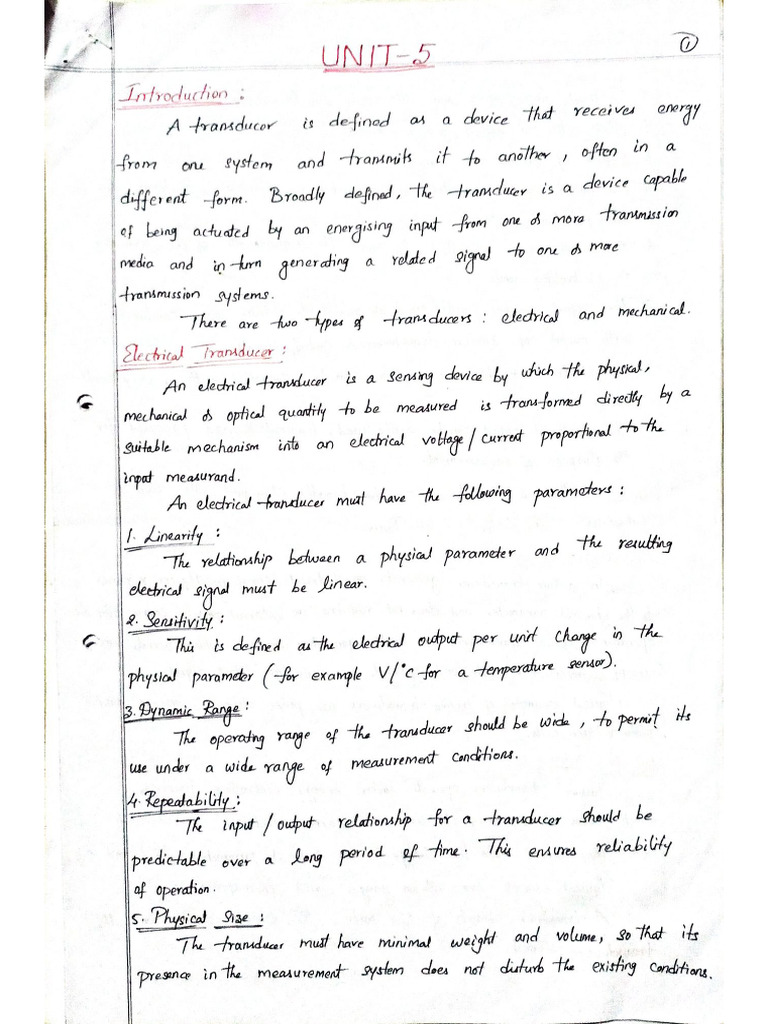 ①
UNIT-5
Introduction :
A transducer is defined as a device that receives energy
from one system and transmits it to another, often in a
different form. Broadly defined, the transducer is a device capable
of being actuated by an energising input from one or more transmission
media and in turn generating a related signal to one or more
transmission systems.
There are two types of transducers : electrical and mechanical.
Electrical Transducer :
An electrical transducer is a sensing device by which the physical,
mechanical or optical quantity to be measured is transformed directly by a
suitable mechanism into an electrical voltage/current proportional to the
input measurand.
An electrical transducer must have the following parameters :
1. Linearity :
The relationship between a physical parameter and the resulting
electrical signal must be linear.
2. Sensitivity :
This is defined as the electrical output per unit change in the
physical parameter (for example V/°C for a temperature sensor).
3. Dynamic Range :
The operating range of the transducer should be wide, to permit its
use under a wide range of measurement conditions.
4. Repeatability :
The input/output relationship for a transducer should be
predictable over a long period of time. This ensures reliability
of operation.
5. Physical Size :
The transducer must have minimal weight and volume, so that its
presence in the measurement system does not disturb the existing conditions.